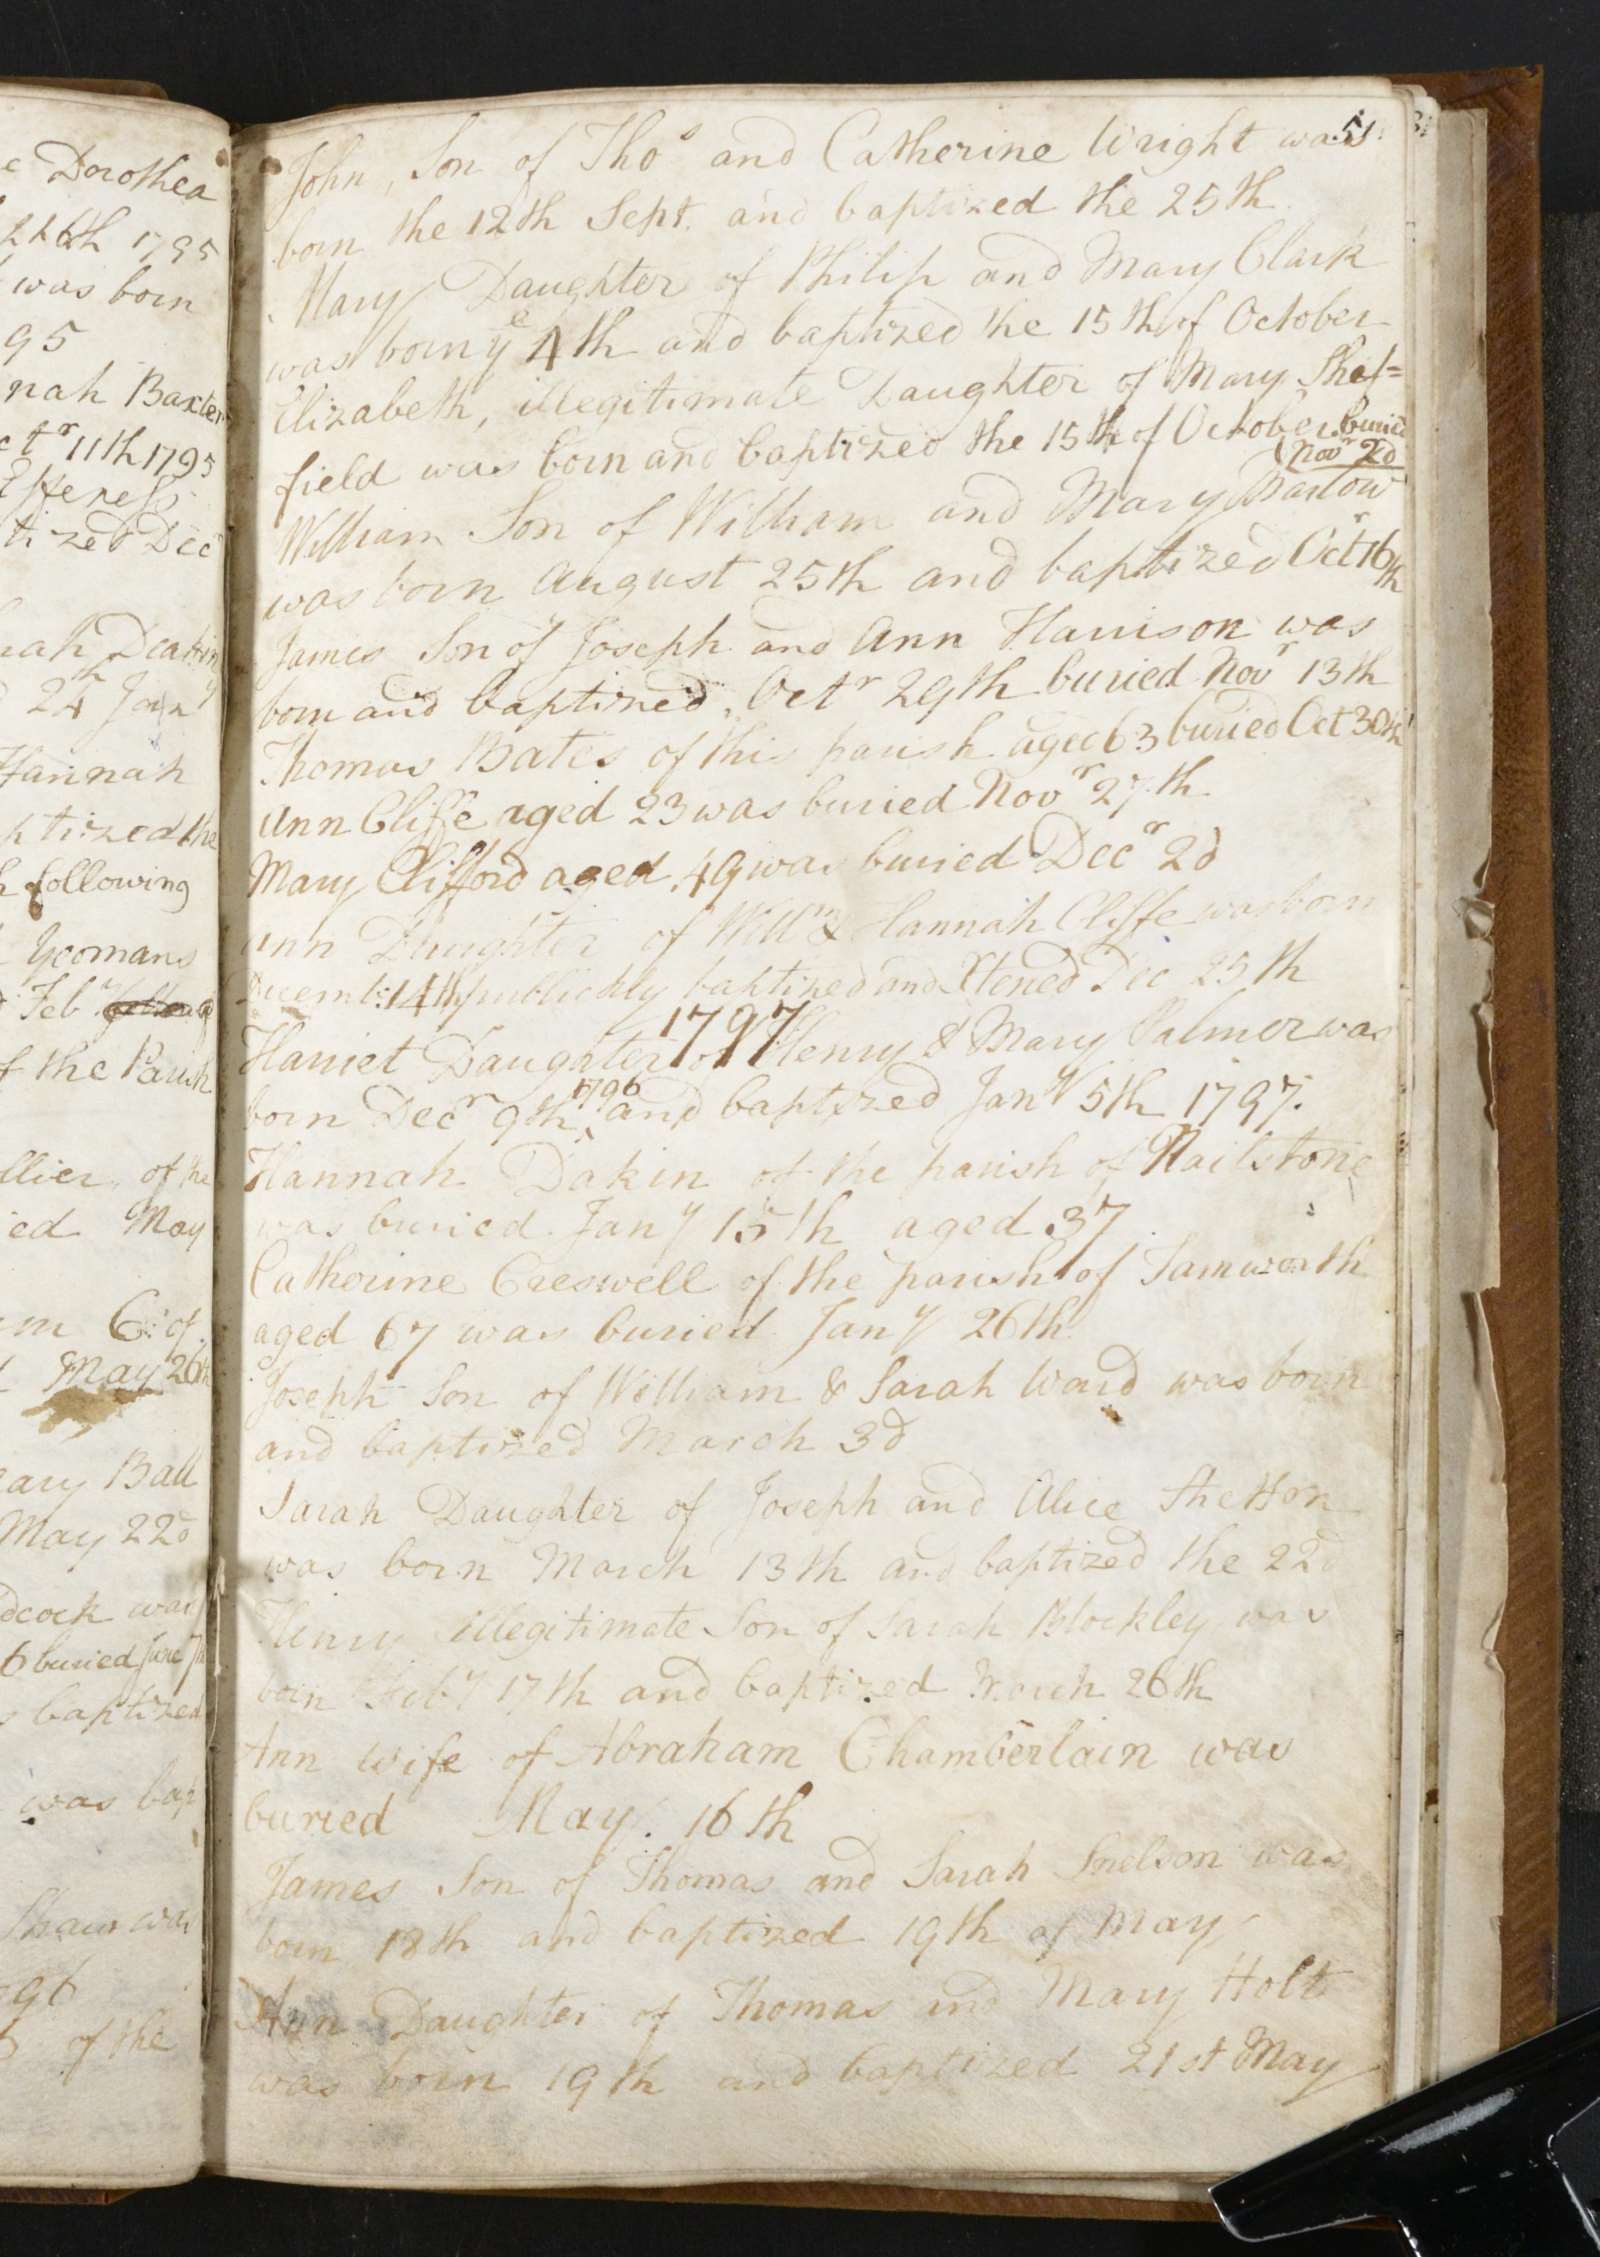 e Dorothea
26th 1795
was born
95
nah Baxter
ctr 11th 1795
tized Decr
nah Deakin
24th Jany
Hannah
ptized the
h following
Yeomans
Feby
f the Parish
llier of the
ied May
m 6 of
May 26th
ary Ball
May 22d
dcock was
6 buried June
s baptized
was bap
Shaw was
96
of the
51
John, Son of Thos and Catherine Wright was
born the 12th Sept. and baptized the 25th
Mary Daughter of Philip and Mary Clark
was born ye 4th and baptized the 15th of October
Elizabeth, illegitimate Daughter of Mary Shef=
field was born and baptized the 15th of October. buried
Novr 2d
William Son of William and Mary Barlow
was born August 25th and baptized Octr 16th
James Son of Joseph and Ann Harrison was
born and baptized, Octr 29th buried Novr 13th
Thomas Bates of this parish aged 63 buried Oct 30th
Ann Cliffe aged 23 was buried Novr 27th
Mary Clifford aged 49 was buried Decr 2d
Ann Daughter of Willm & Hannah Cliffe was born
Decemb: 14th publickly baptized and Xtened Dec 25th
1797
Harriet Daughter of Henry & Mary Palmer was
born Decr 9th 1796 and baptized Jany 5th 1797.
Hannah Dakin of the parish of Nailstone
was buried Jany 15th aged 37
Catherine Creswell of the parish of Tamworth
aged 67 was buried Jany 26th
Joseph Son of William & Sarah Ward was born
and baptized March 3d
Sarah Daughter of Joseph and Alice Shelton
was born March 13th and baptized the 22d
Henry illegitimate Son of Sarah Blockley was
born Feby 17th and baptized March 26th
Ann wife of Abraham Chamberlain was
buried May. 16th
James Son of Thomas and Sarah Snelson was
born 18th and baptized 19th of May
Ann Daughter of Thomas and Mary Holt
was born 19th and baptized 21st May